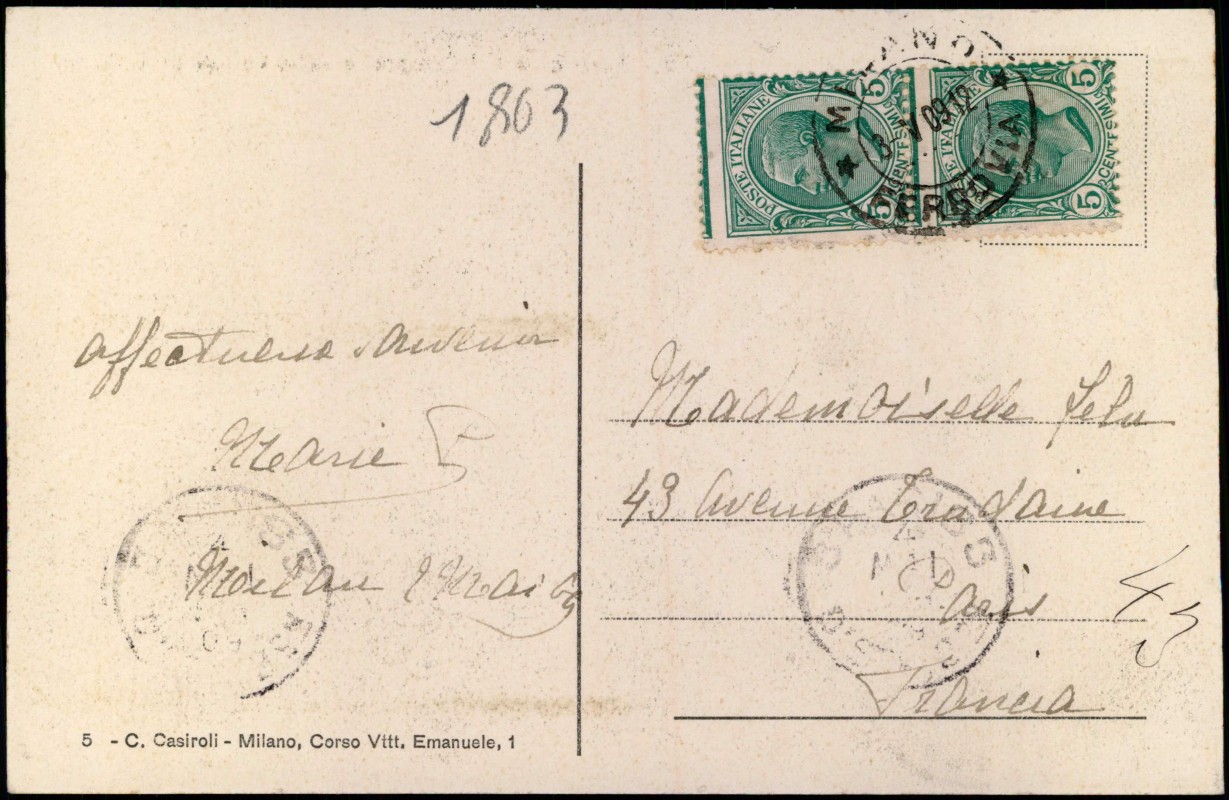 1803
POSTE ITALIANE
5
5
CENTESIMI
POSTE ITALIANE
5
5
CENTESIMI
MILANO
FERROVIA
8 V 09 12
affectueux souvenir
Marie
Milan 2 Mai 09
Mademoiselle
43 Avenue Trudaine
Paris
Francia
43
55
5 - C. Casiroli - Milano, Corso Vttt. Emanuele, 1